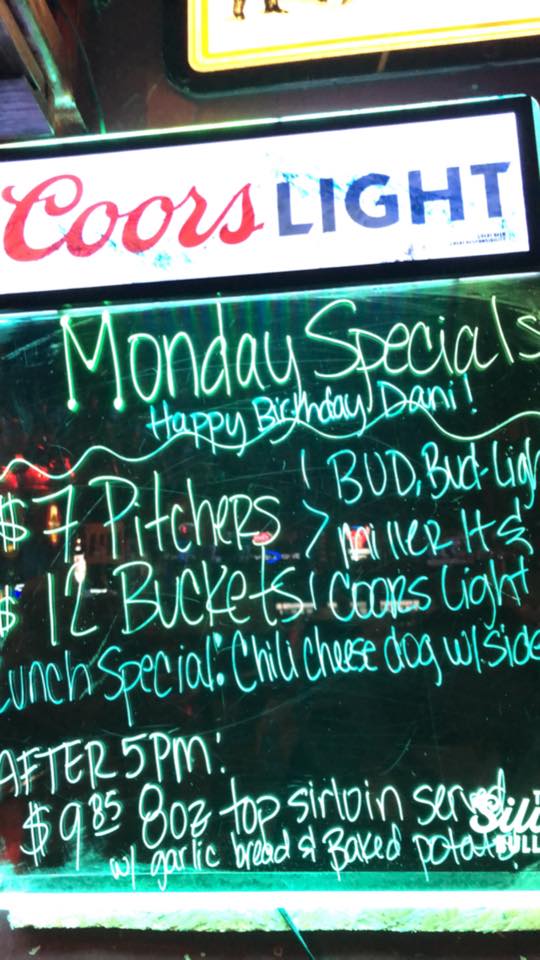 Coors LIGHT
Monday Specials
Happy Birthday Dani!
$7 Pitchers > BUD, Bud-Ligh
$12 Buckets Miller lt &
Coors Light
Lunch Special: Chili cheese dog w/ side
AFTER 5PM:
$9.85 8oz top sirloin
w/ garlic bread & Baked potato